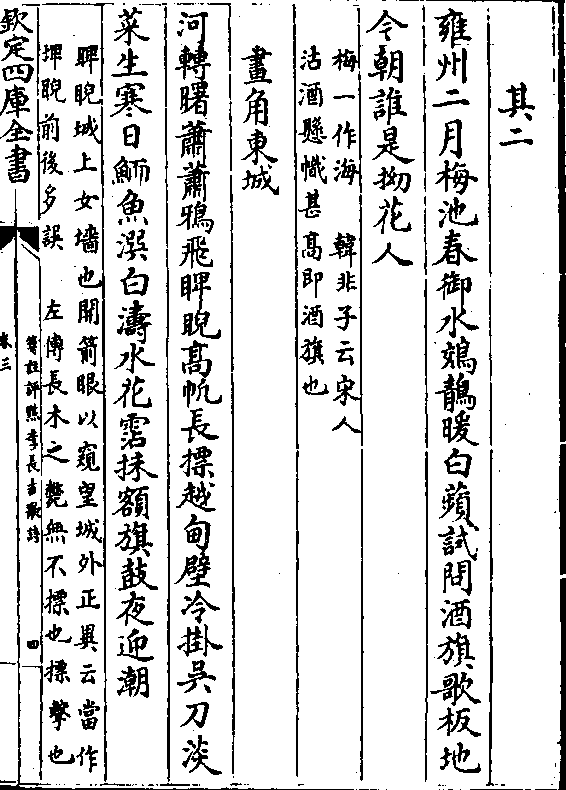 其二
雍州二月梅池春御水䴔鶄暖白蘋試問酒旗歌板地
今朝誰是拗花人
梅一作海　韓非子云宋人
沽酒懸幟甚髙即酒旗也
畫角東城
河轉曙蕭蕭鴉飛睥睨髙帆長摽越甸壁冷掛吳刀淡
菜生寒日鮞魚潠白濤水花霑抹額旗鼓夜迎潮
睥睨城上女墻也開箭眼以窺望城外正與云當作
埤睨前後多誤　左傳長木之斃無不摽也摽擊也
欽定四庫全書
卷三
箋註評㸃李長吉歌詩
四